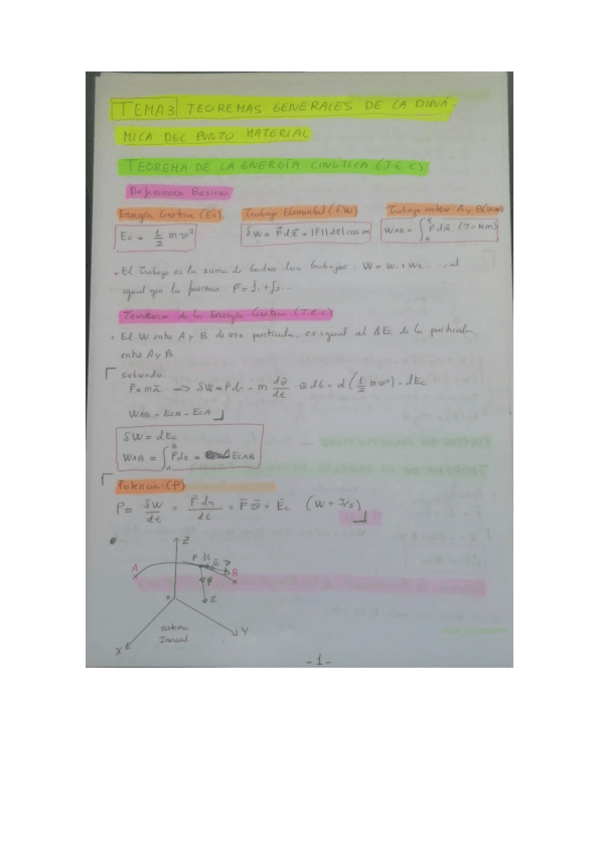 TEMA 3 TEOREMAS GENERALES DE LA DINÁ-
MICA DEL PUNTO MATERIAL
TEOREMA DE LA ENERGÍA CINÉTICA (T.E.C)
Definiciones Básicas
Energía Cinética (Ec) Trabajo Elemental (δW) Trabajo entre A y B
Ec = 1/2 m v² δW = F dr = |F||dr| cos α W AB = ∫_A^B F dr (J = N·m)
• El Trabajo es la suma de todos los trabajos: W = W1 + W2..., al
igual que las fuerzas: F = f1 + f2...
Teorema de la Energía Cinética (T.E.C)
• El W entre A y B de una partícula, es igual al ΔEc de la partícula
entre A y B.
sabiendo:
F = ma → δW = F dr = m dv/dt · v dt = d(1/2 m v²) = dEc
W AB = EcB - EcA
δW = dEc
W AB = ∫_A^B F dr = Ec AB
Potencia: (P)
P = δW/dt = F dr/dt = F v = Ėc (W = J/s)
Z
A
F dr
B
O
sistema
Inercial
X
Y
- 1 -